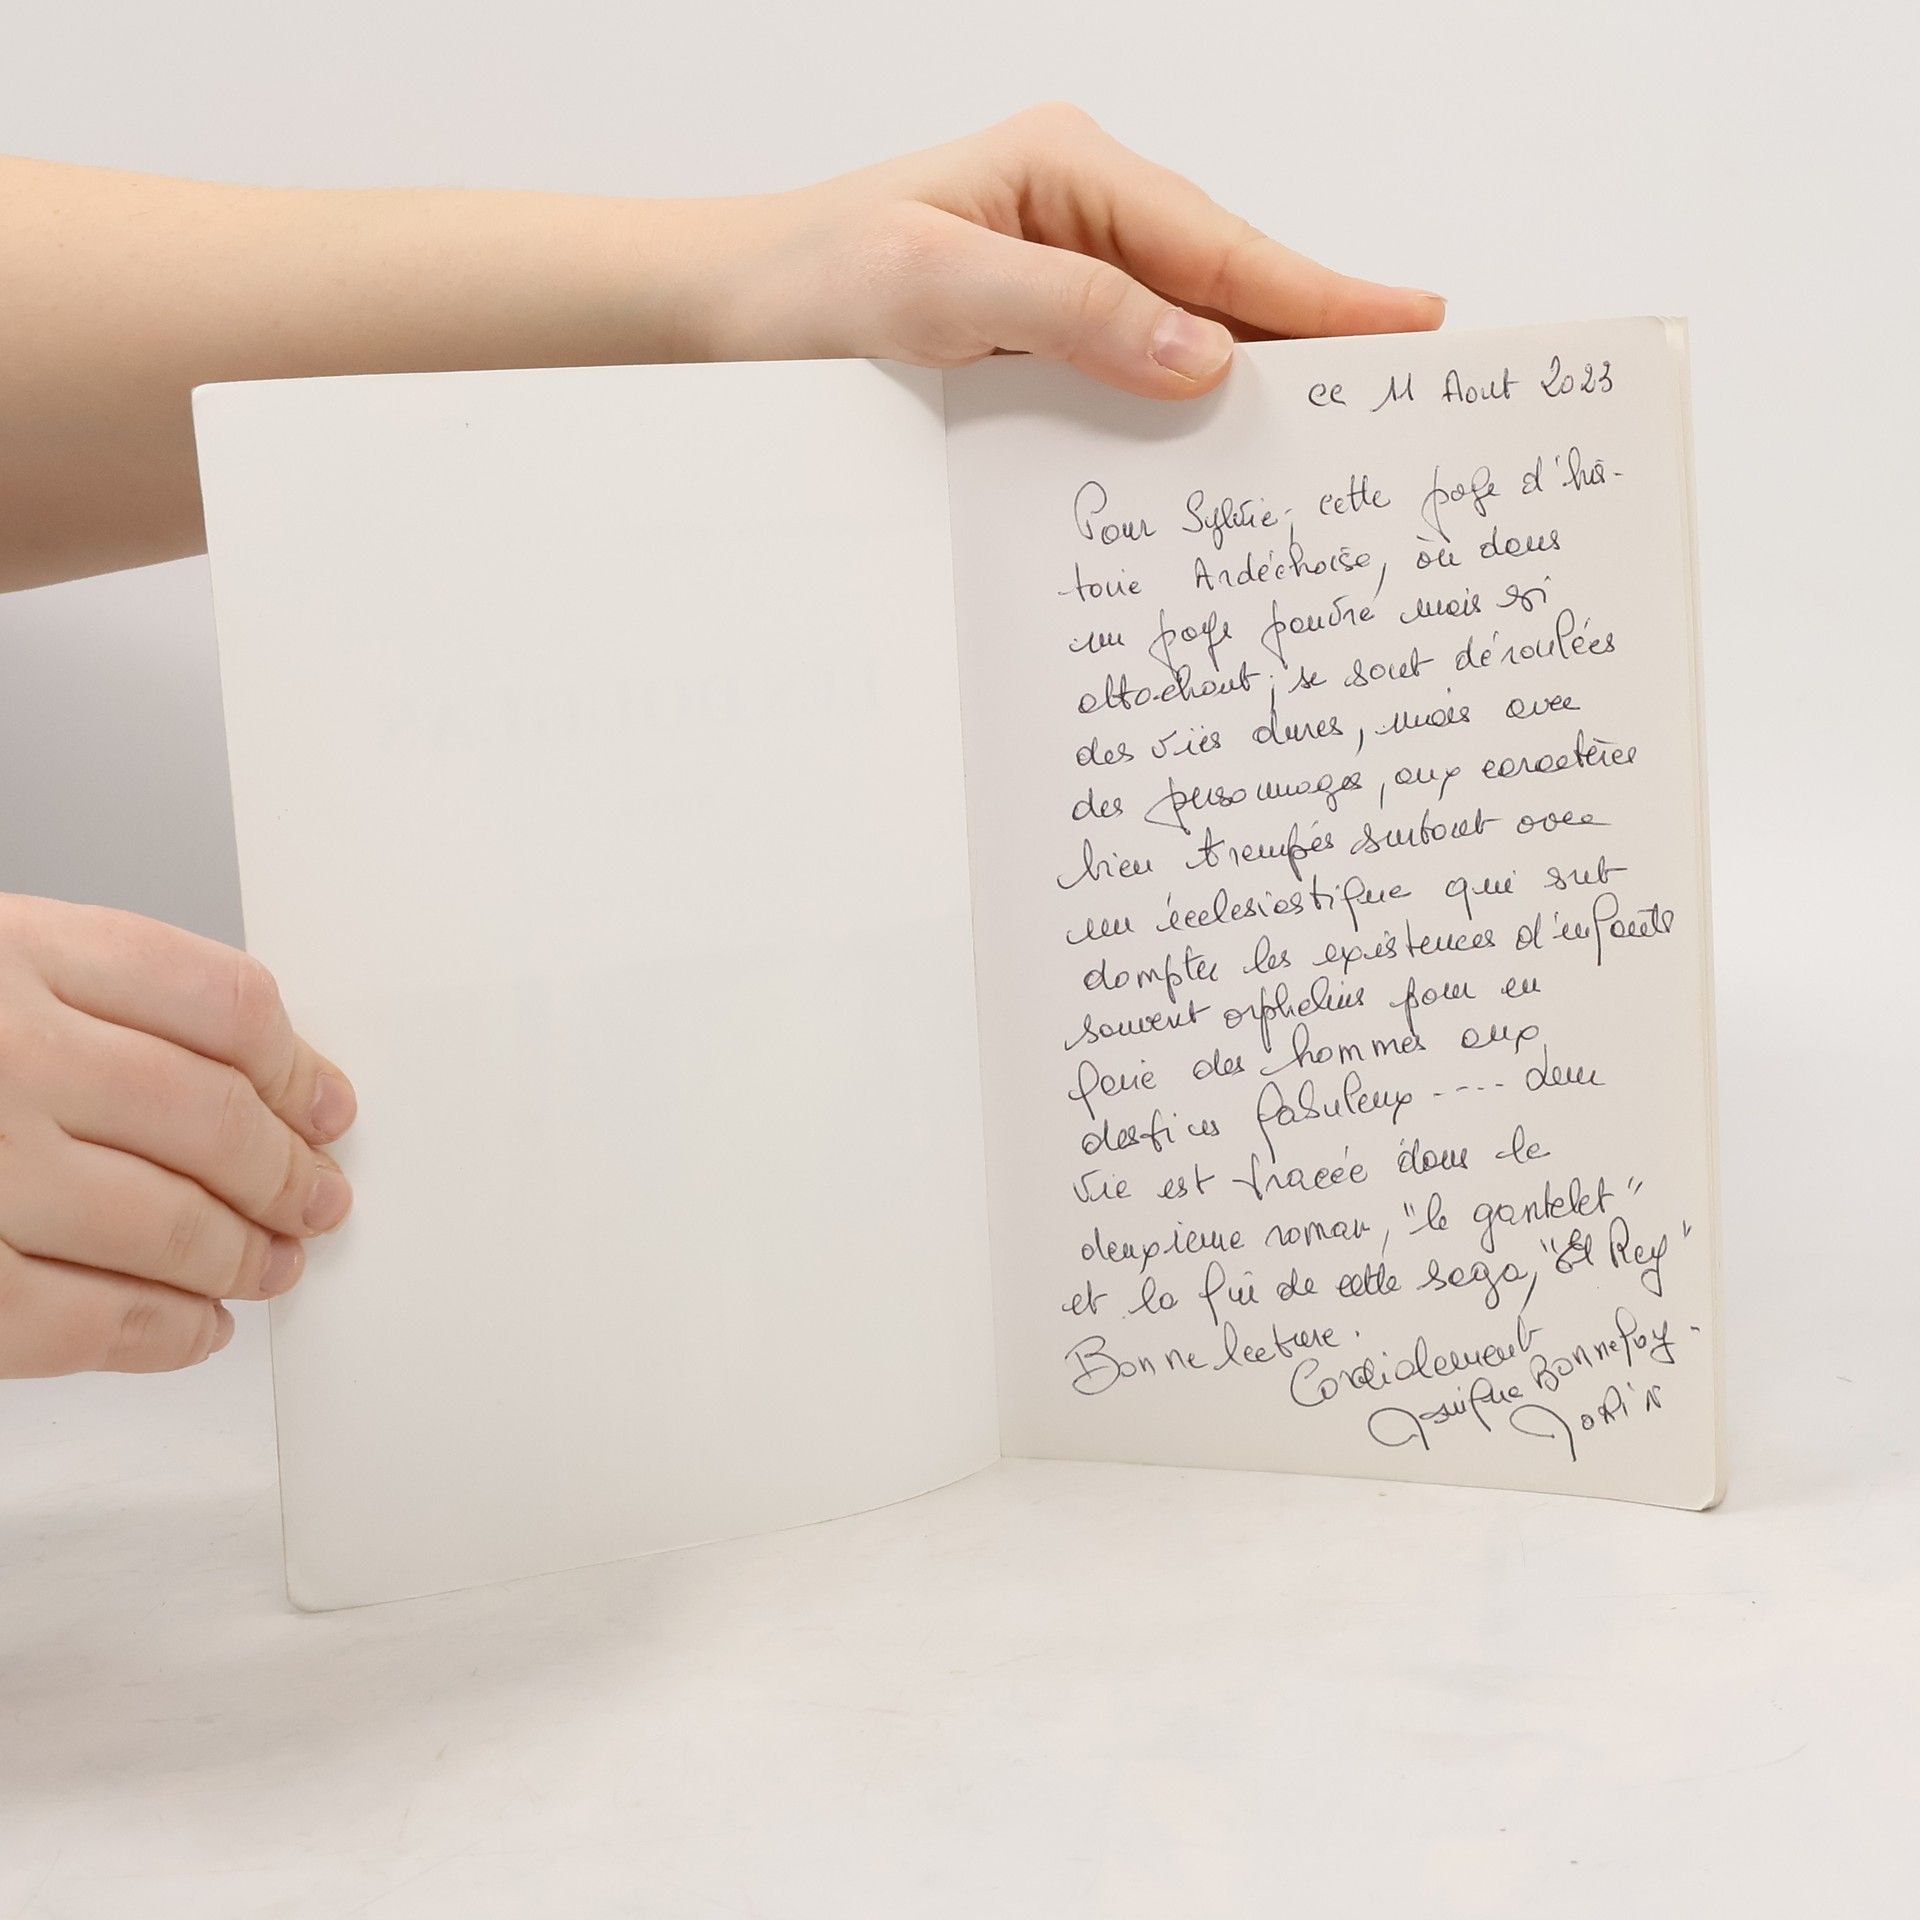 ce 11 Aout 2023
Pour Sylvie, cette page d'his-
toire Ardéchoise, où dans
un pays pauvre mais si
attachant, se sont déroulées
des vies dures, mais avec
des personnages, aux caractères
bien trempés surtout avec
un écclesiastique qui sut
dompter les existences d'enfants
souvent orphelins pour en
faire des hommes aux
destins fabuleux .... leur
vie est tracée dans le
deuxième roman, "le gantelet"
et la fin de cette saga, "El Rey"
Bonne lecture.
Cordialement
Bonnefoy-